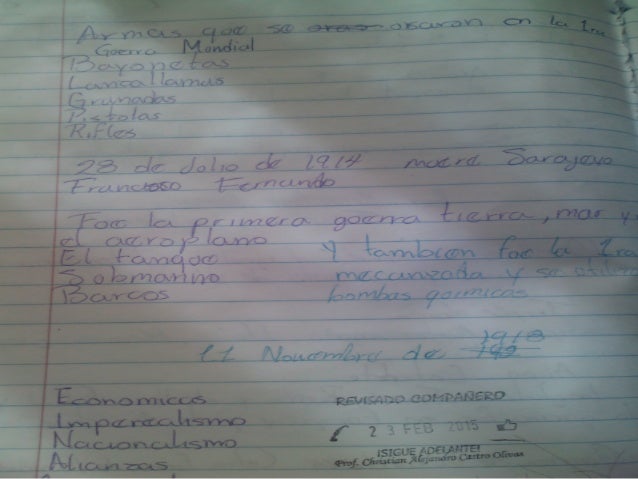 Armas que se usaron en la 1ra
Guerra Mondial
Bayonetas
Lanzallamas
Granadas
Pistolas
Rifles
28 de Jolio de 1914 muere Sarajevo
Francisco Fernando
Foe la primera goerra tierra, mar y
el aeroplano
El tanque y tambien foe la 1ra
Sobmarino mecanizada y se
Barcos bombas qoimicas
11 Nouembre de
Economicas REVISADO COMPAÑERO
Imperealismo 23 FEB 2015
Nacionalismo ¡SIGUE ADELANTE!
Alianzas Prof. Christian Alejandro Castro Olivas